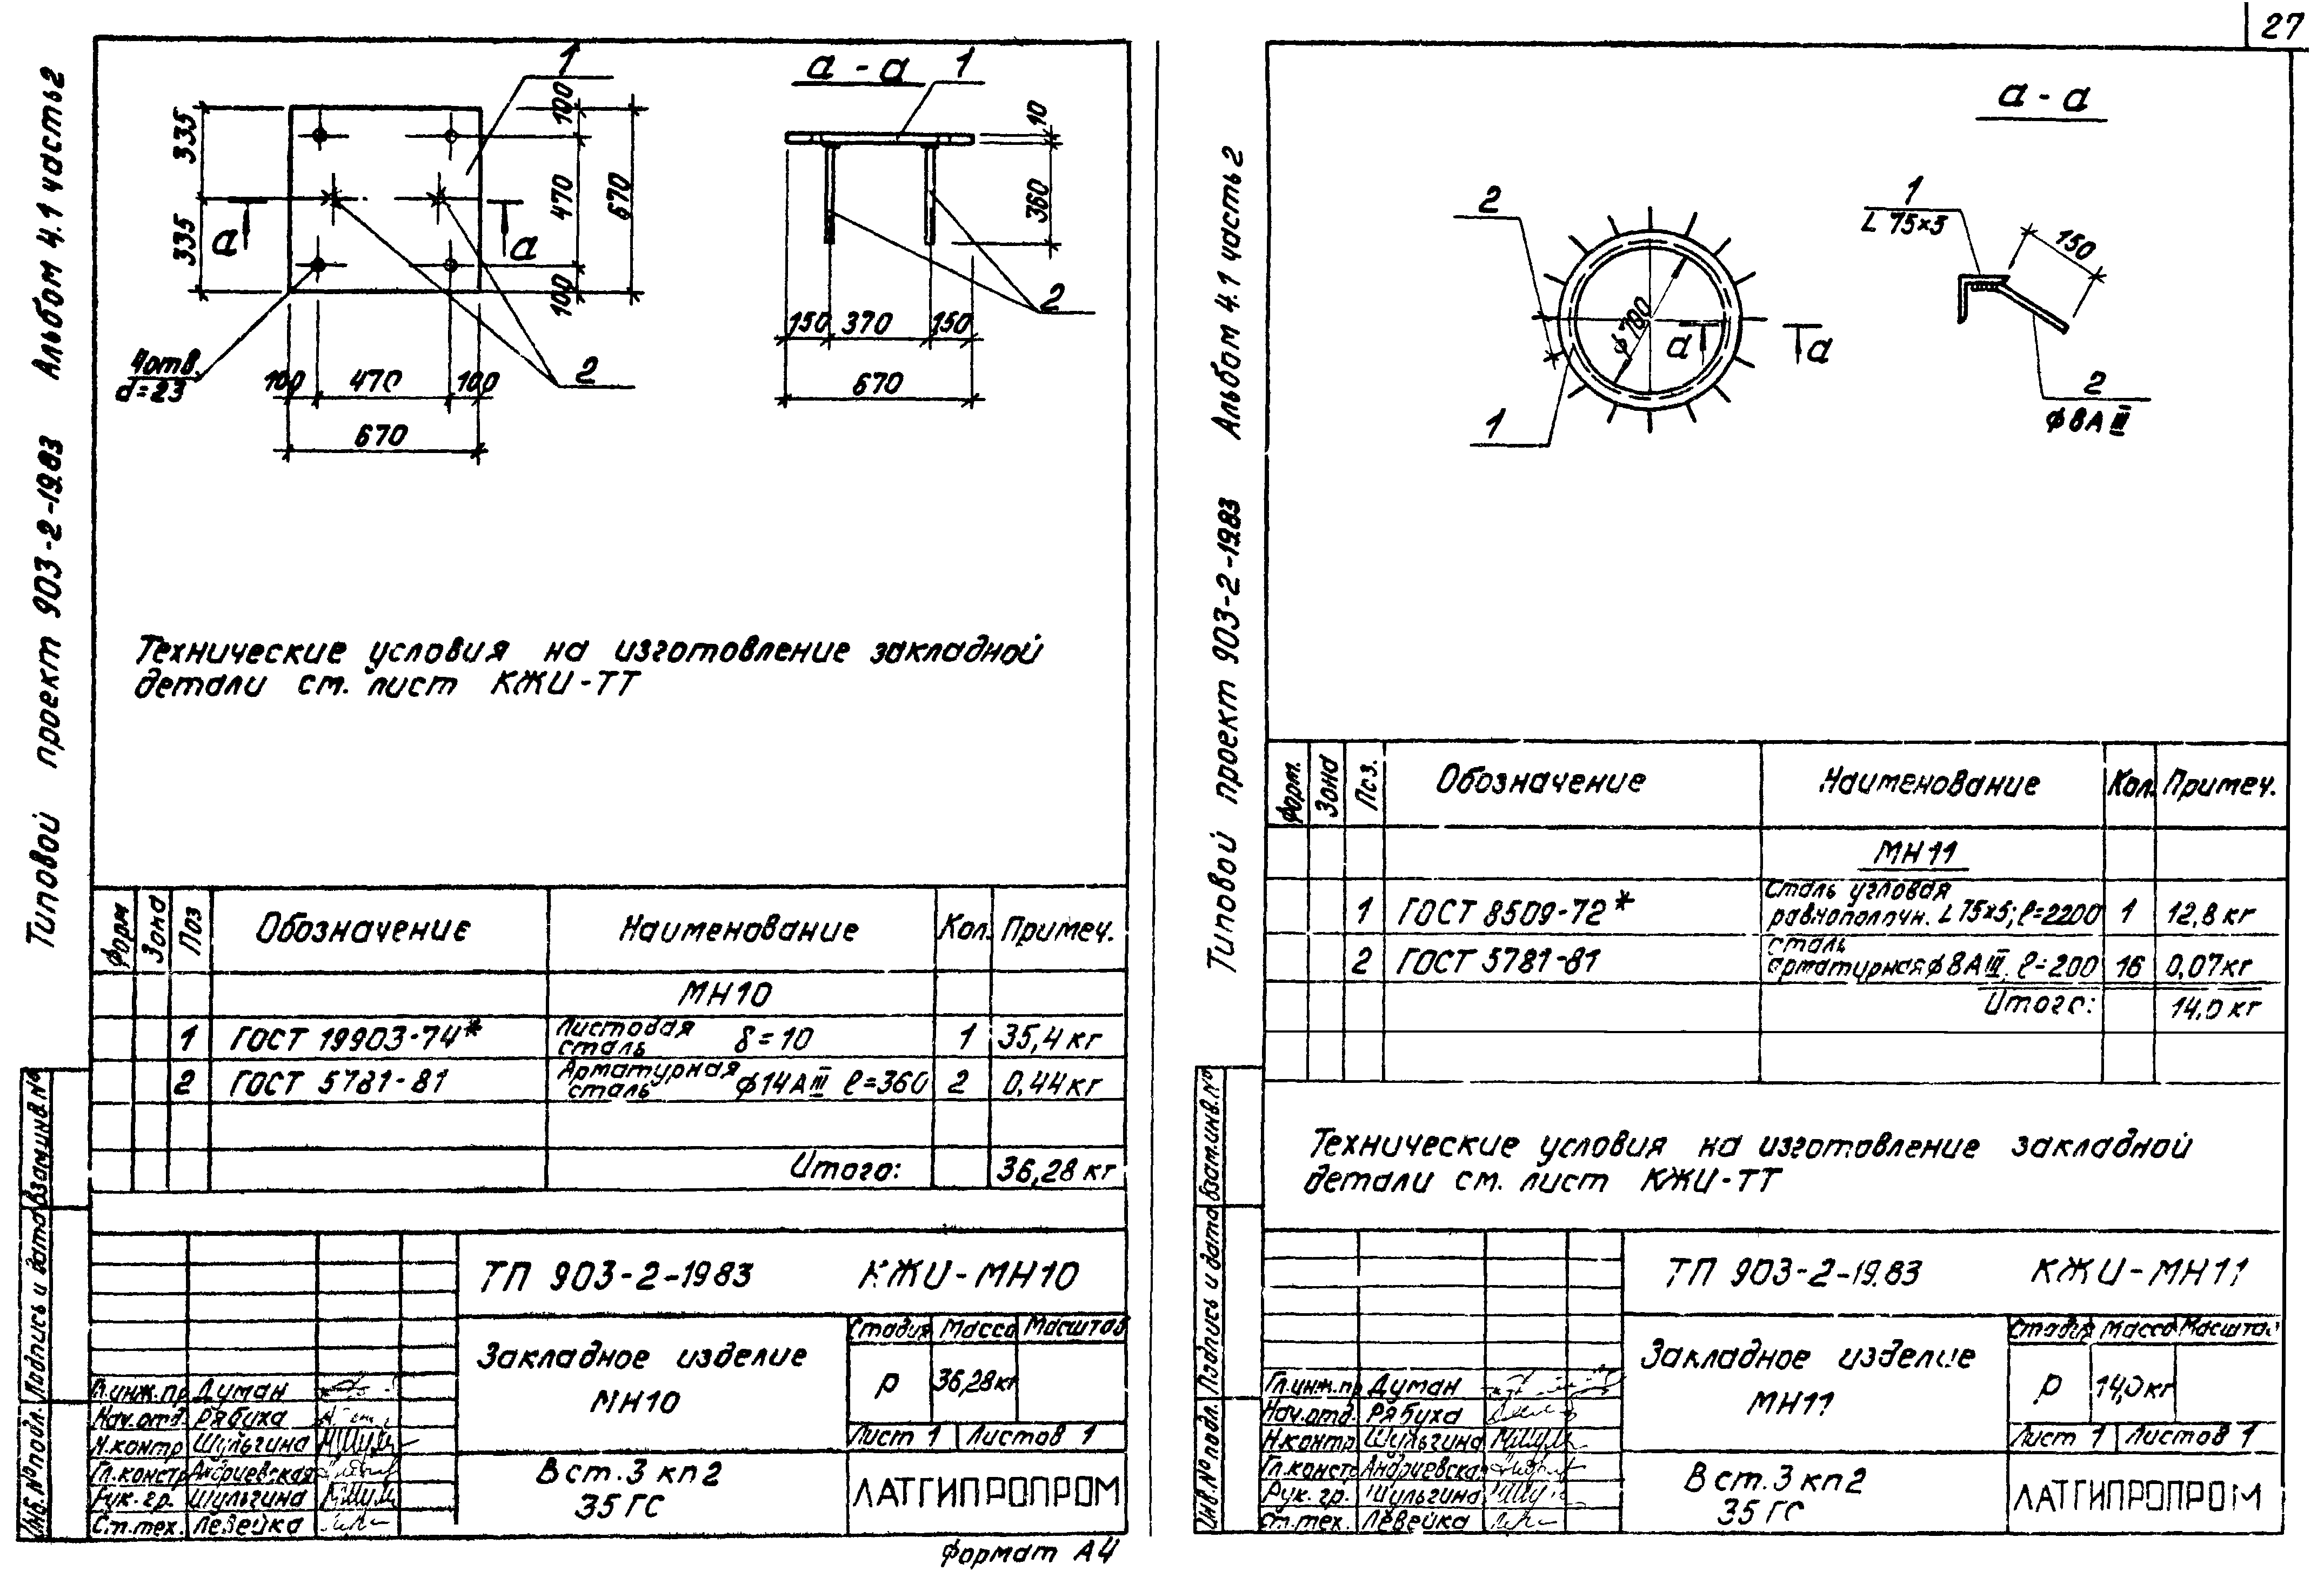 27
Типовой проект 903-2-19.83 Альбом 4.1 часть 2
1
а - а 1
335
335
100
470
100
670
а
а
4 отв.
d=23
100 470 100
670
2
10
360
150 370 150
670
2
Технические условия на изготовление закладной
детали см. лист КЖИ-ТТ
Форм Зона Поз Обозначение Наименование Кол. Примеч.
МН10
1 ГОСТ 19903-74* Листовая сталь δ=10 1 35,4 кг
2 ГОСТ 5781-81 Арматурная сталь ϕ14АIII ℓ=360 2 0,44 кг
Итого: 36,28 кг
Инв.№ подл. Подпись и дата Взам.инв.№
ТП 903-2-1983 КЖИ-МН10
Закладное изделие
МН10
Стадия Масса Масштаб
Р 36,28кг
Лист 1 Листов 1
Гл.инж.пр Думан
Нач.отд. Рябуха
Н.контр Шульгина
Гл.констр Андриевская
Рук.гр. Шульгина
Ст.тех. Левейка
В ст.3 кп2
35 ГС
ЛАТГИПРОПРОМ
Формат А4
Типовой проект 903-2-19.83 Альбом 4.1 часть 2
а - а
2
1
ϕ700
а
а
1
L 75×5
150
2
ϕ8АIII
Форм. Зона Поз. Обозначение Наименование Кол. Примеч.
МН11
1 ГОСТ 8509-72* Сталь угловая равнополочн. L 75×5; ℓ=2200 1 12,8 кг
2 ГОСТ 5781-81 Сталь арматурная ϕ8АIII, ℓ=200 16 0,07кг
Итого: 14,0 кг
Технические условия на изготовление закладной
детали см. лист КЖИ-ТТ
Инв.№ подл. Подпись и дата Взам.инв.№
ТП 903-2-19.83 КЖИ-МН11
Закладное изделие
МН11
Стадия Масса Масштаб
Р 14,0кг
Лист 1 Листов 1
Гл.инж.пр Думан
Нач.отд. Рябуха
Н.контр Шульгина
Гл.констр Андриевская
Рук.гр. Шульгина
Ст.тех. Левейка
В ст.3 кп2
35 ГС
ЛАТГИПРОПРОМ